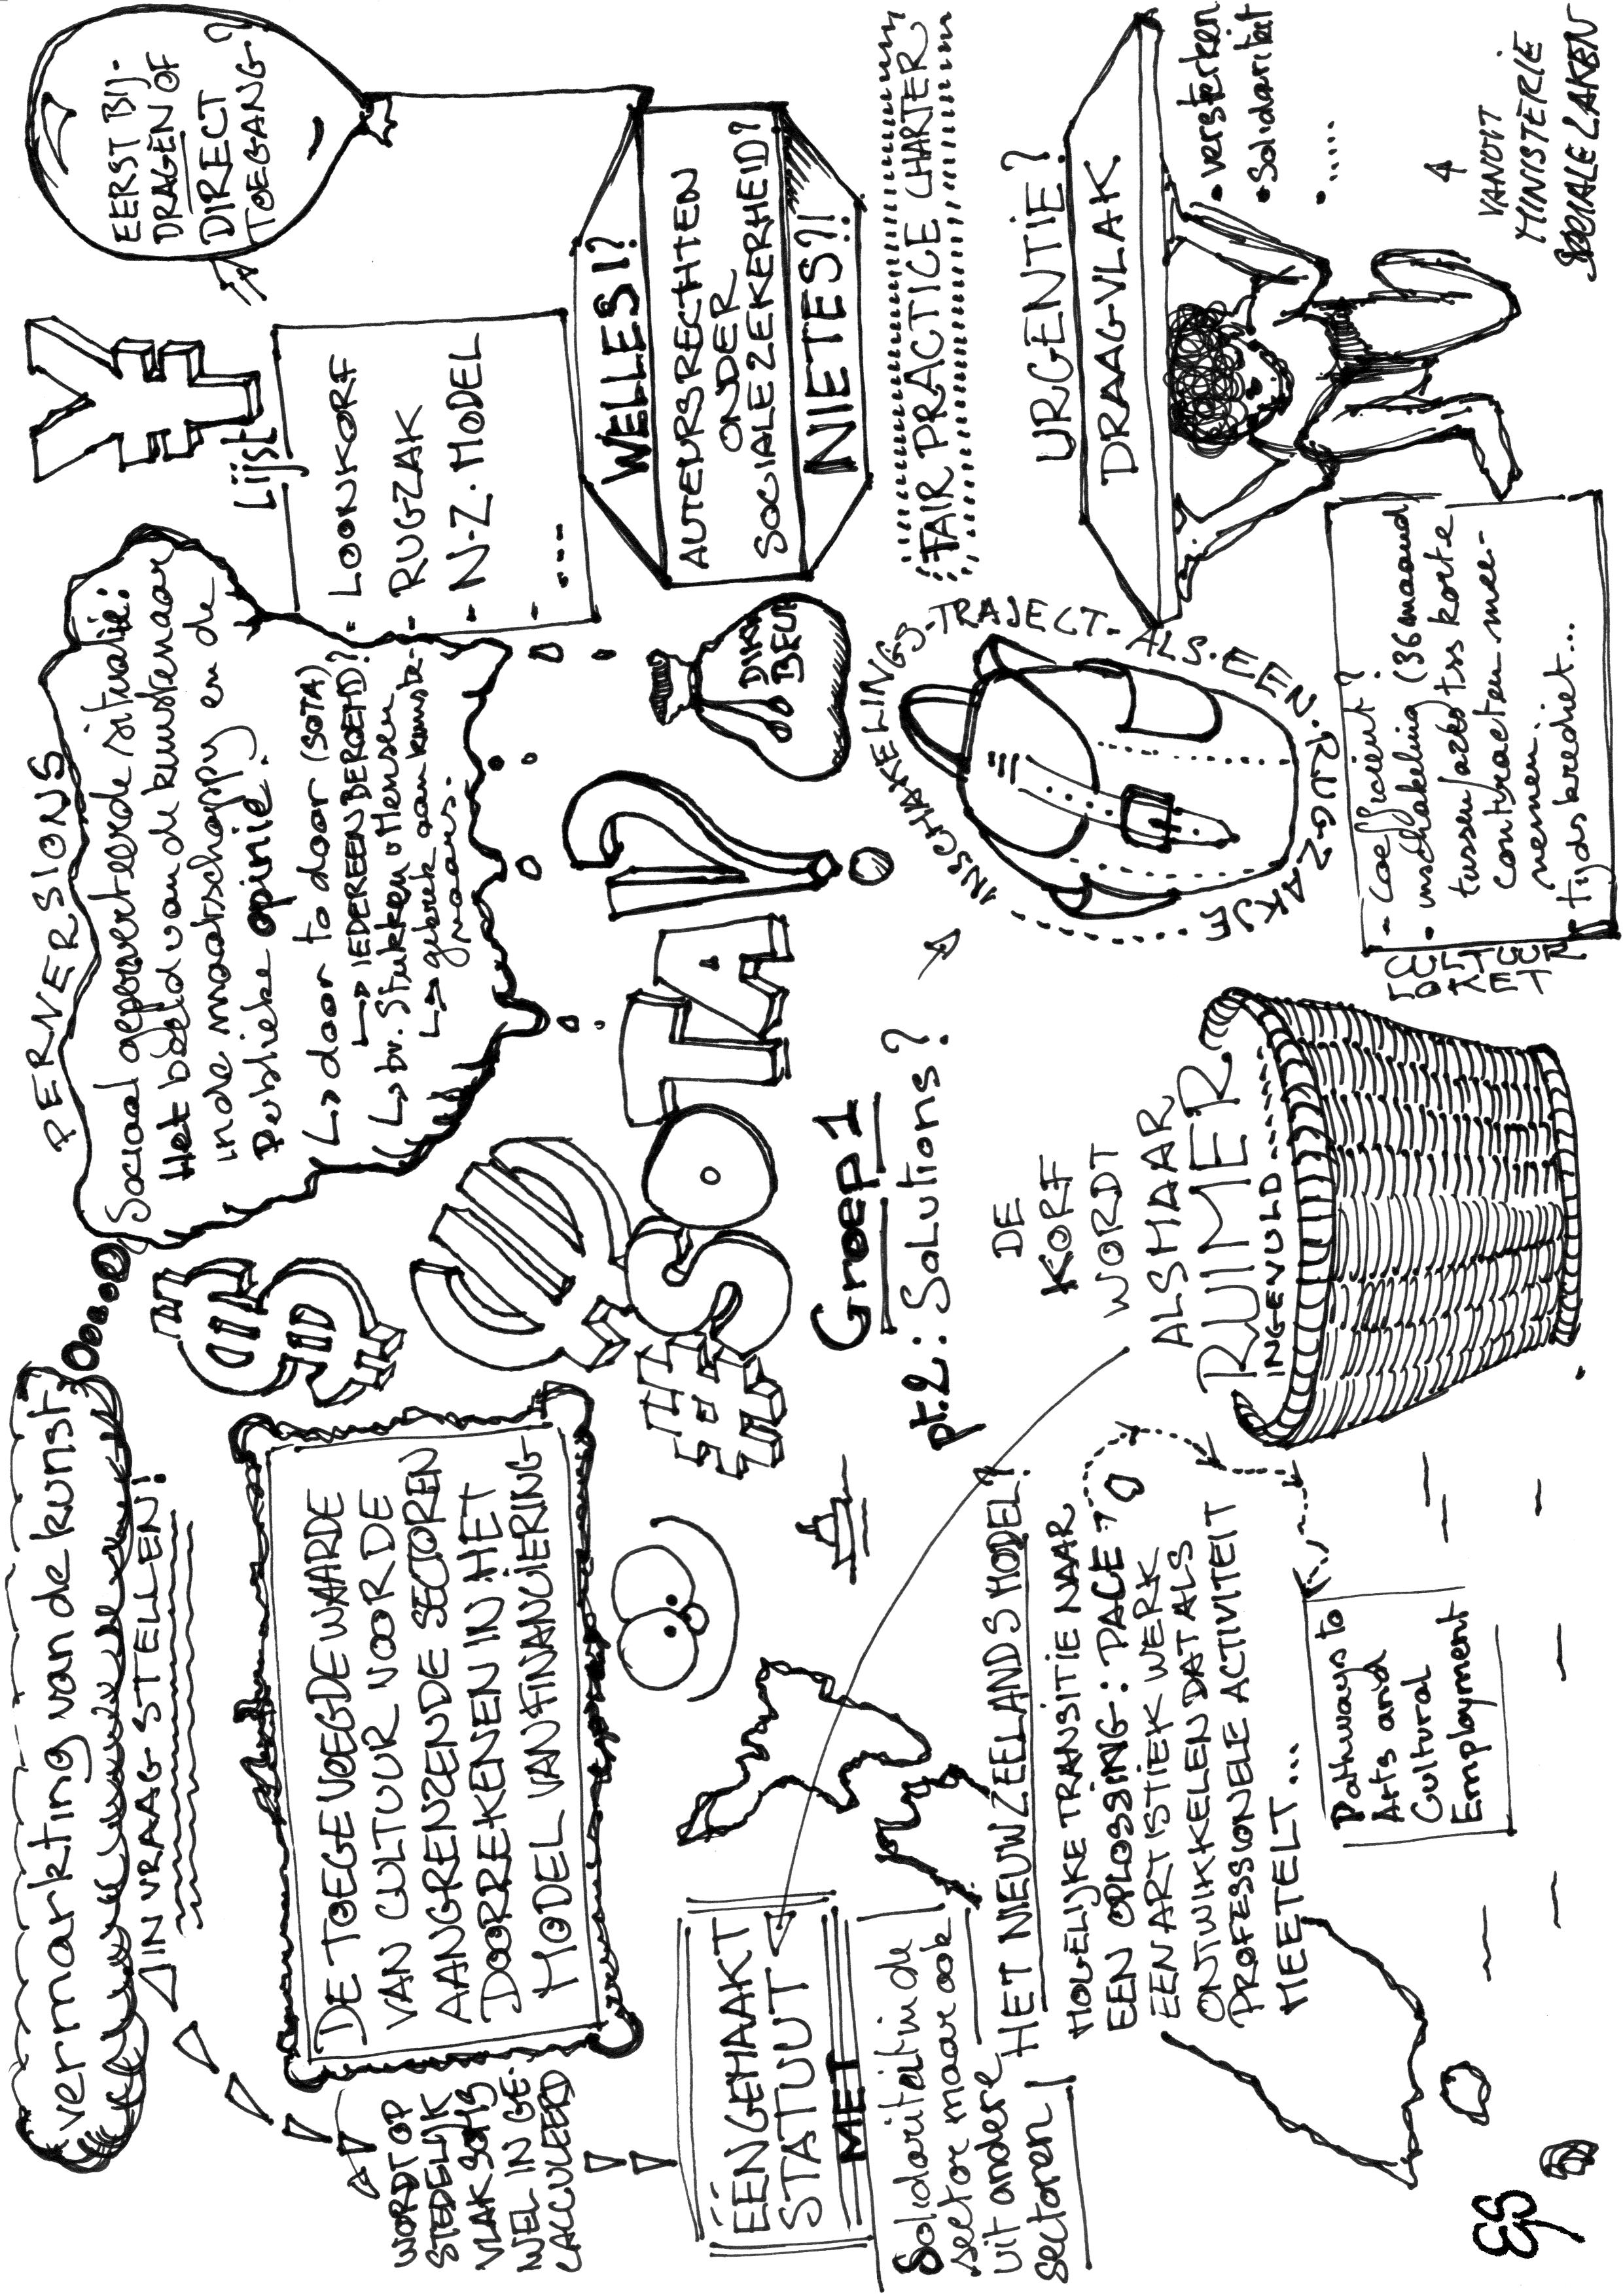 vermarkting van de kunst
IN VRAAG STELLEN!
DE TOEGEVOEGDE WAARDE
VAN CULTUUR VOOR DE
AANGRENZENDE SECTOREN
DOORREKENEN IN HET
MODEL VAN FINANCIERING
WORDT OP
STEDELIJK
VLAK SOMS
WEL IN GE-
CALCULEERD
PERVERSIONS
Sociaal geperverteerde situatie:
Het beeld van de kunstenaar
in de maatschappy en de
Publieke opinie.
door to door (SOTA)
IEDEREEN BEROEMD?
bv. Stukken v Mensen
gebrek aan kunste-
naars.
¥
$
€
#SOTA!?
DIKKE
BEUR
Lijst
- LOONKORF
- RUGZAK
- N-Z. MODEL
- ...
EERST BIJ-
DRAGEN OF
DIRECT
TOEGANG?
WELLES!?
AUTEURSRECHTEN
ONDER
SOCIALE ZEKERHEID?
NIETES?!
FAIR PRACTICE CHARTER
Groep 1
pt.2: Solutions?
ÉÉNGEMAAKT
STATUUT
MET
Solidariteit in de
sector maar ook
uit andere
sectoren
HET NIEUWZEELANDS MODEL?
MOGELIJKE TRANSITIE NAAR
EEN OPLOSSING: PACE
EEN ARTISTIEK WERK
ONTWIKKELEN DAT ALS
PROFESSIONELE ACTIVITEIT
MEETELT...
Pathways to
Arts and
Cultural
Employment
DE
KORF
WORDT
ALSMAAR
RUIMER
INGEVULD
INSCHAKELINGS-TRAJECT-ALS-EEN-RUGZAKJE
- Coëfficient?
• inschakeling (36 maand
tussen/achter tss korte
contracten mee-
nemen.
tijdskrediet...
URGENTIE?
DRAAGVLAK
• versterken
• Solidariteit
• .....
VANUIT
MINISTERIE
SOCIALE ZAKEN
ES